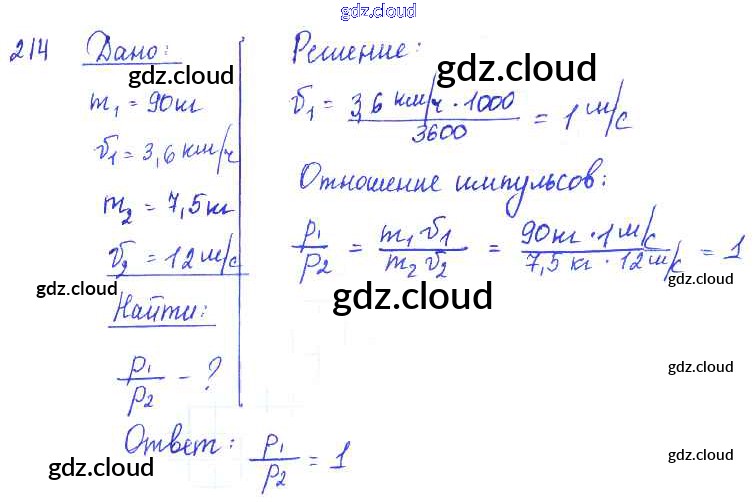 gdz.cloud
214 Дано:
gdz.cloud
m₁ = 90 кг
v₁ = 3,6 км/ч
m₂ = 7,5 кг
v₂ = 12 м/с
gdz.cloud
Найти:
p₁/p₂ - ?
Решение:
gdz.cloud
v₁ = 3,6 км/ч · 1000 / 3600 = 1 м/с
Отношение импульсов:
p₁/p₂ = m₁v₁ / m₂v₂ = 90 кг · 1 м/с / 7,5 кг · 12 м/с = 1
gdz.cloud
gdz.cloud
gdz.cloud
Ответ: p₁/p₂ = 1
gdz.cloud
gdz.cloud